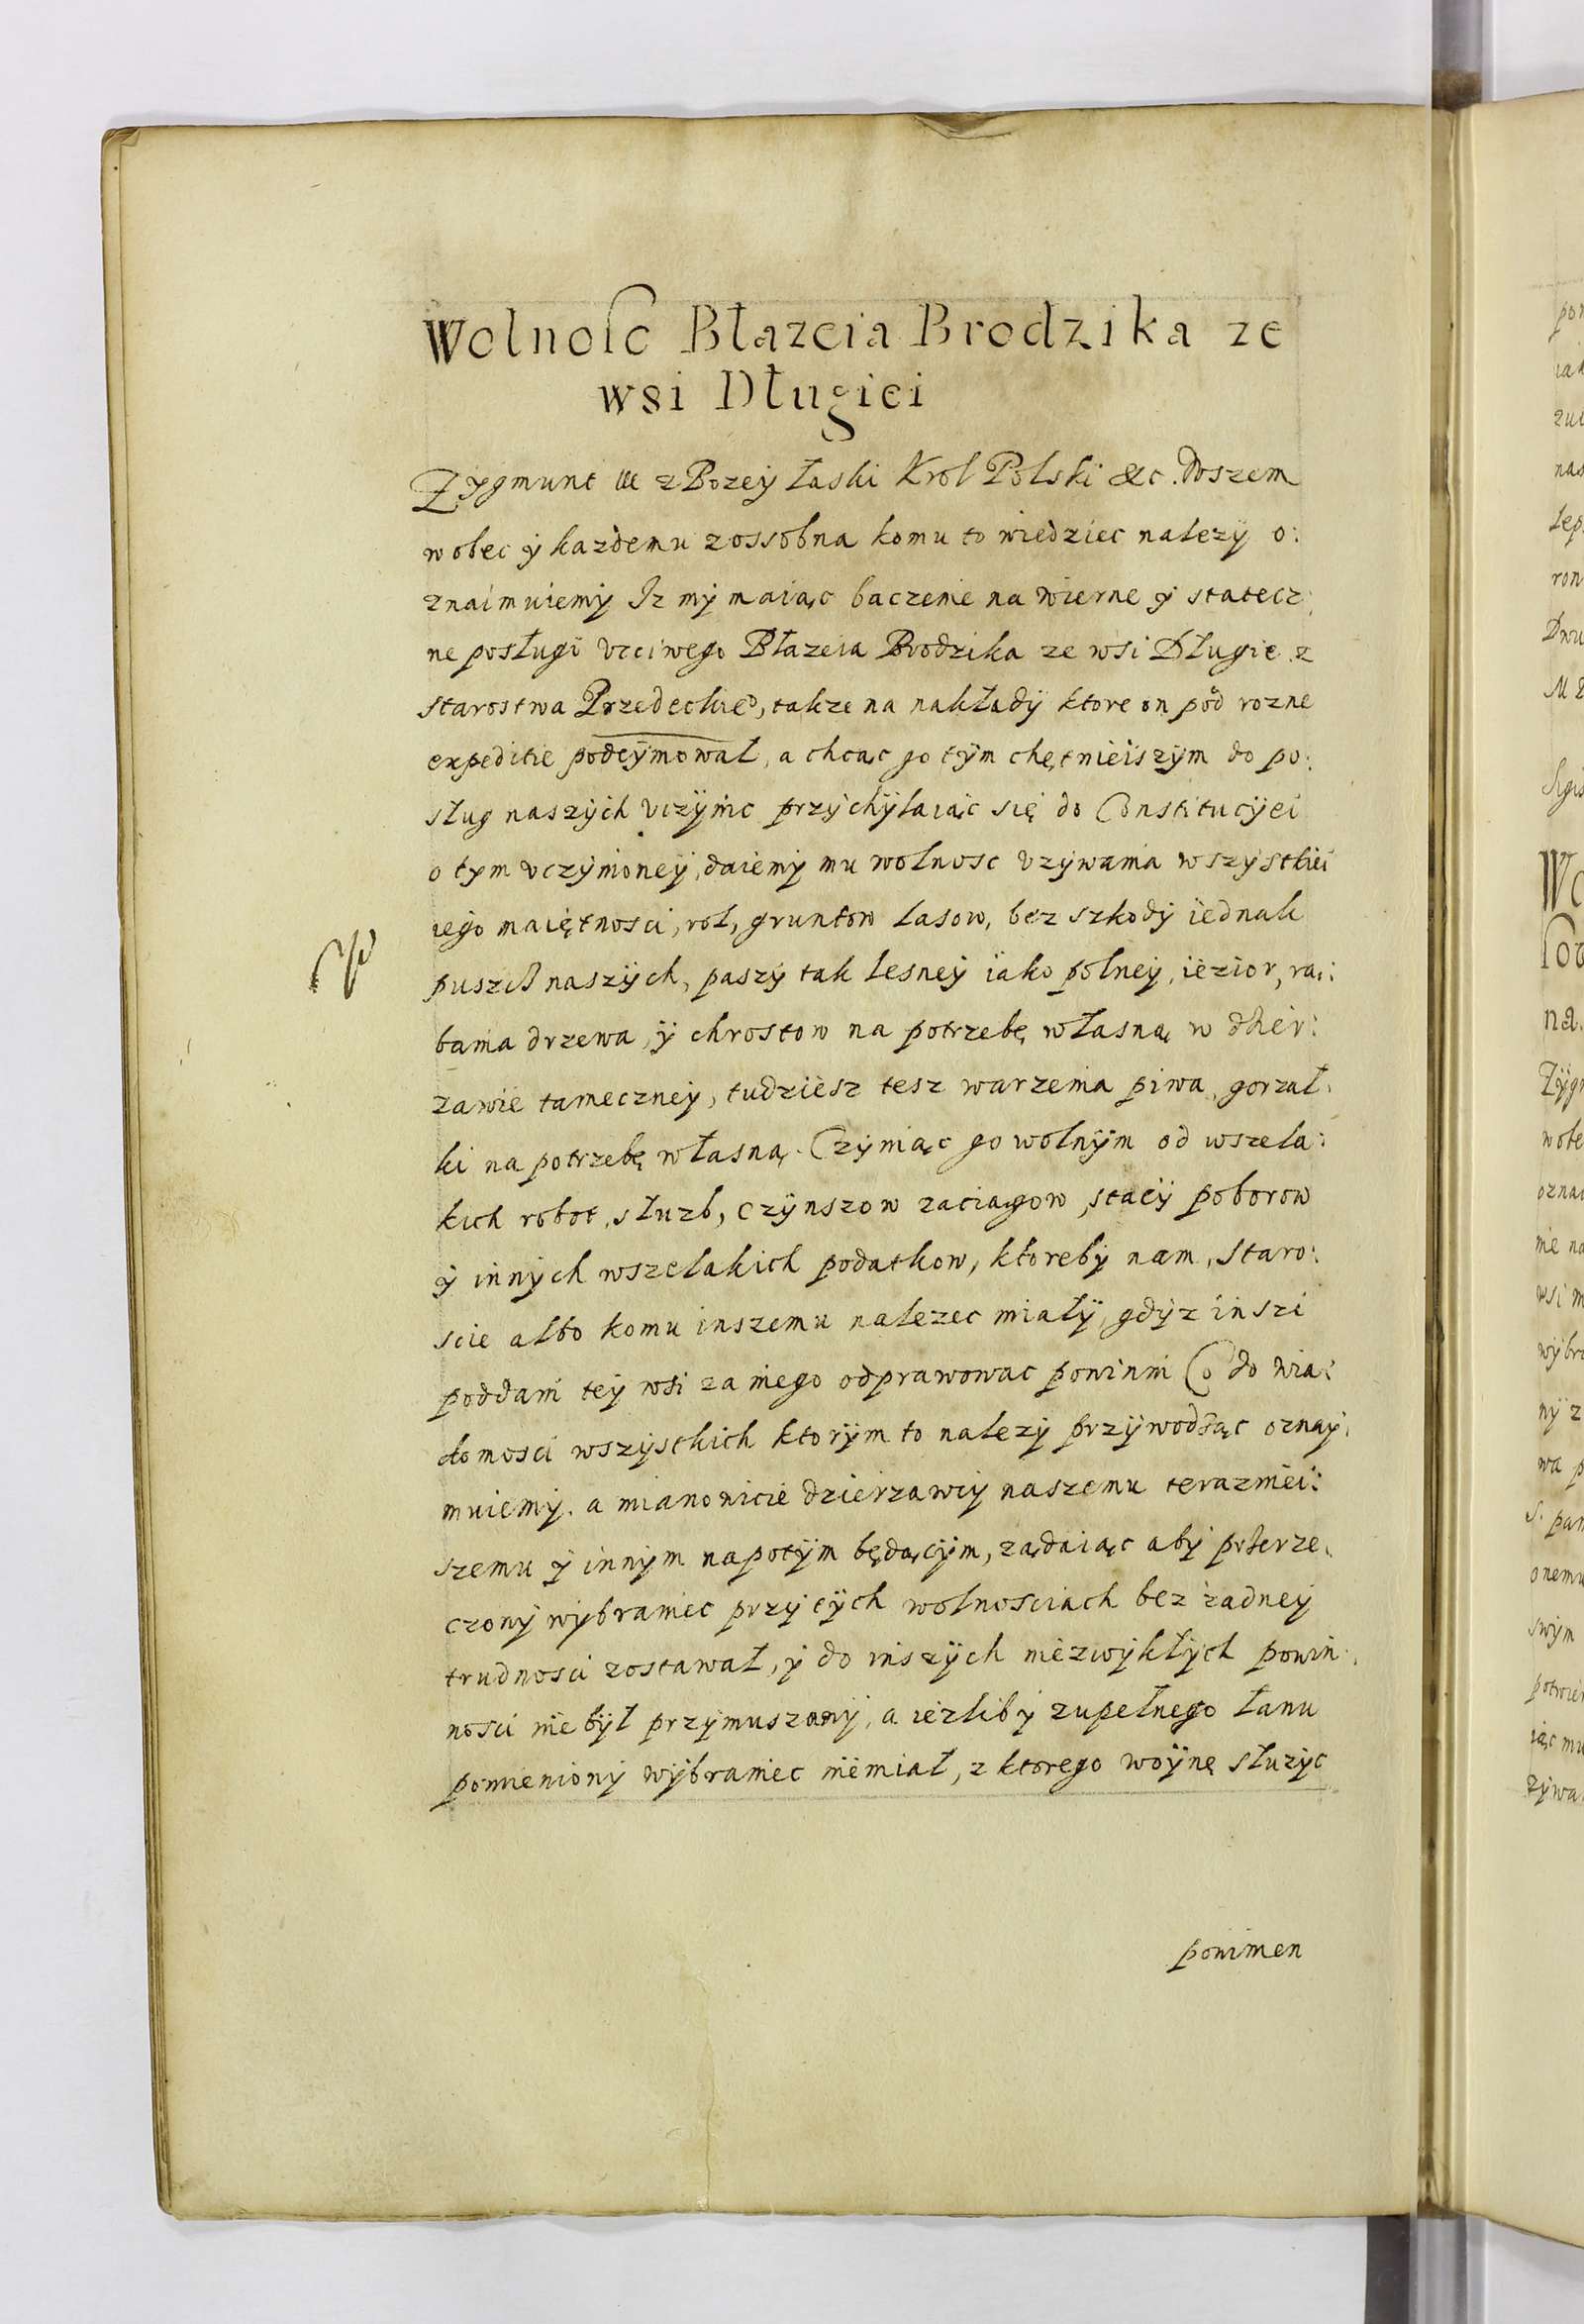 Wolnosc Błazeia Brodzika ze
wsi Długiei
Zygmunt III z Bozey łaski Krol Polski &c. doszem
wobec ÿ kazdemu zossobna komu to wiedziec nalezÿ o:
znaimuiemÿ Iz mÿ maiąc baczenie na wierne ÿ statecz:
ne posługi vcciwego Błazeia Brodzika ze wsi Długie z
starostwa Przedeckie°, takze na nakładÿ ktore on pod rozne
expeditie podeÿmował, a chcąc go tÿm chętnieiszÿm do po:
sług naszÿch vczÿnic przÿchÿlaiąc się do Constitucÿei
o tym vczÿnioneÿ, daiemÿ mu wolnosc vzÿwania wszÿstkiei
iego maiętnosci, rol, gruntow lasow, bez szkodÿ iednak
puszcz naszÿch, paszÿ tak lesneÿ iako polneÿ, iezior, rą:
bania drzewa, ÿ chrostow na potrzebę własną w dzier:
zawie tameczneÿ, tudziesz tesz warzenia piwa, gorzał:
ki na potrzebę własną. Czÿniąc go wolnÿm od wszela:
kich robot, słuzb, czÿnszow zaciągow, stacÿ poborow
ÿ innÿch wszelakich podatkow, ktorebÿ nam, staro:
scie albo komu inszemu nalezec miałÿ, gdÿz inszi
poddani teÿ wsi za niego odprawowac powinni Co do wia:
domosci wszÿstkich ktorÿm to nalezÿ przÿwodząc oznaÿ:
muiemÿ. a mianowicie dzierzawcÿ naszemu terazniei:
szemu ÿ innÿm napotÿm będącÿm, ządaiąc abÿ przerze:
czonÿ wÿbraniec przÿ tÿch wolnosciach bez zadneÿ
trudnosci zostawał, ÿ do inszÿch niezwÿkłÿch powin:
nosci nie bÿł przÿmuszanÿ, a iezlibÿ zupełnego łanu
pomienionÿ wÿbraniec niemiał, z ktorego woÿnę słuzÿc
powinien